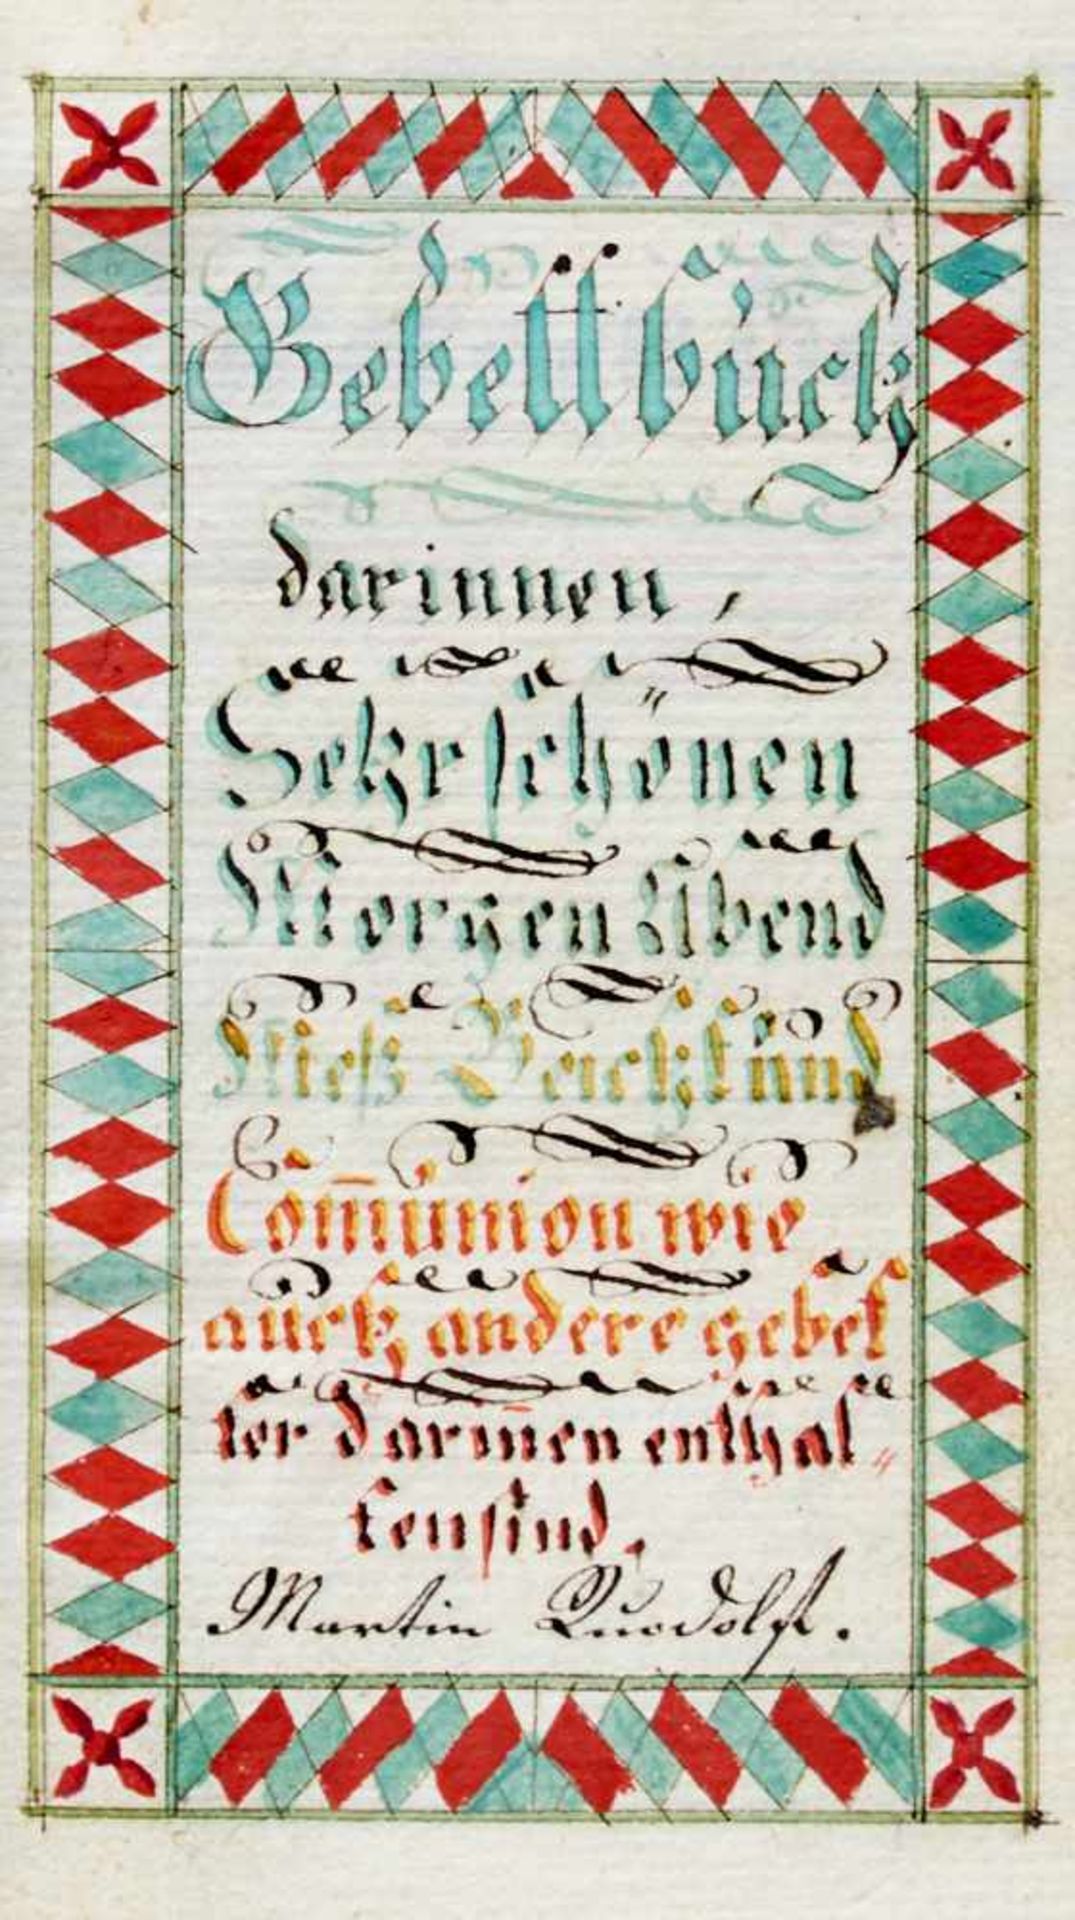 Gebett büch
darinnen,
Sehr schönen
Morgen Abend
Meß Beicht ünd
Com̄ünion wie
aüch andere gebet
ter darin̄en enthal„
ten sind.
Martin Ruodolft.